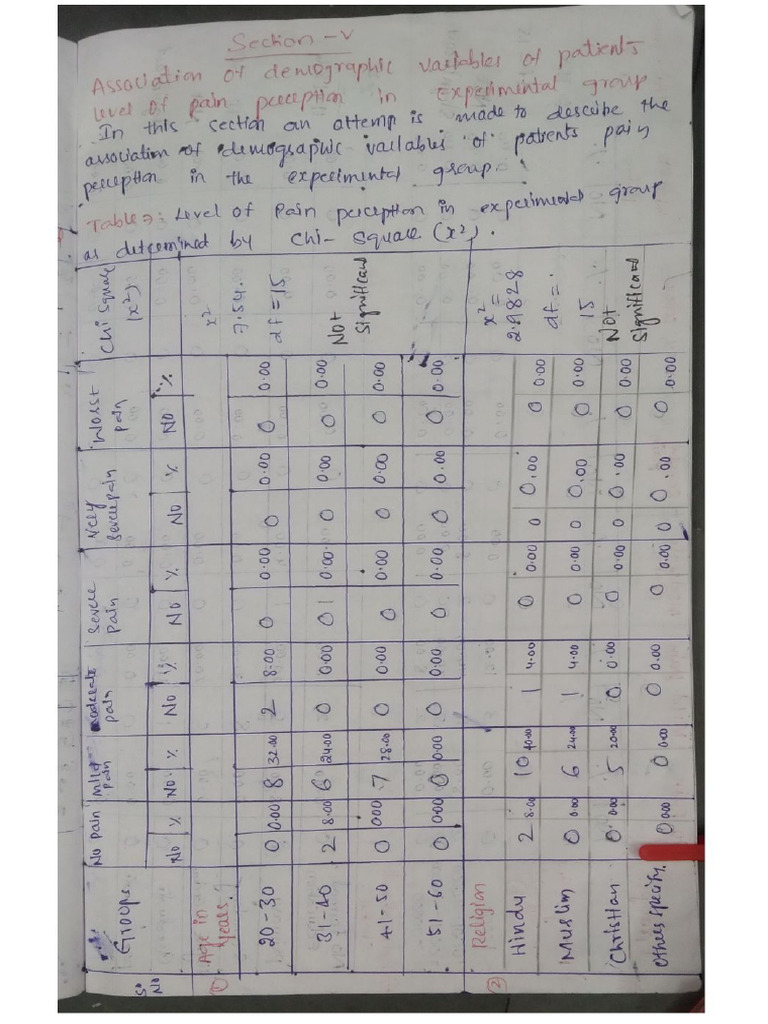 Section - V
Association of demographic variables of patients
level of pain perception in experimental group
In this section an attemp is made to describe the
association of demographic variables of patients pain
perception in the experimental group.
Table 7: Level of Pain perception in experimental group
as determined by chi-square (x²).
S. No | Groups | No pain | Mild pain | Moderate pain | Severe pain | Very severe pain | Worst pain | Chi square (x²)
No | % | No | % | No | % | No | % | No | % | No | %
① Age in years. | x²
20-30 | 0 | 0.00 | 8 | 32.00 | 2 | 8.00 | 0 | 0.00 | 0 | 0.00 | 0 | 0.00 | 7.54.
31-40 | 2 | 8.00 | 6 | 24.00 | 0 | 0.00 | 0 | 0.00 | 0 | 0.00 | 0 | 0.00 | df = 15
41-50 | 0 | 0.00 | 7 | 28.00 | 0 | 0.00 | 0 | 0.00 | 0 | 0.00 | 0 | 0.00 | Not
51-60 | 0 | 0.00 | 0 | 0.00 | 0 | 0.00 | 0 | 0.00 | 0 | 0.00 | 0 | 0.00 | Significant
② Religion | x² =
Hindu | 2 | 8.00 | 10 | 40.00 | 1 | 4.00 | 0 | 0.00 | 0 | 0.00 | 0 | 0.00 | 2.9828
Muslim | 0 | 0.00 | 6 | 24.00 | 1 | 4.00 | 0 | 0.00 | 0 | 0.00 | 0 | 0.00 | df = 15
Christian | 0 | 0.00 | 5 | 20.00 | 0 | 0.00 | 0 | 0.00 | 0 | 0.00 | 0 | 0.00 | Not
Others specify. | 0 | 0.00 | 0 | 0.00 | 0 | 0.00 | 0 | 0.00 | 0 | 0.00 | 0 | 0.00 | Significant